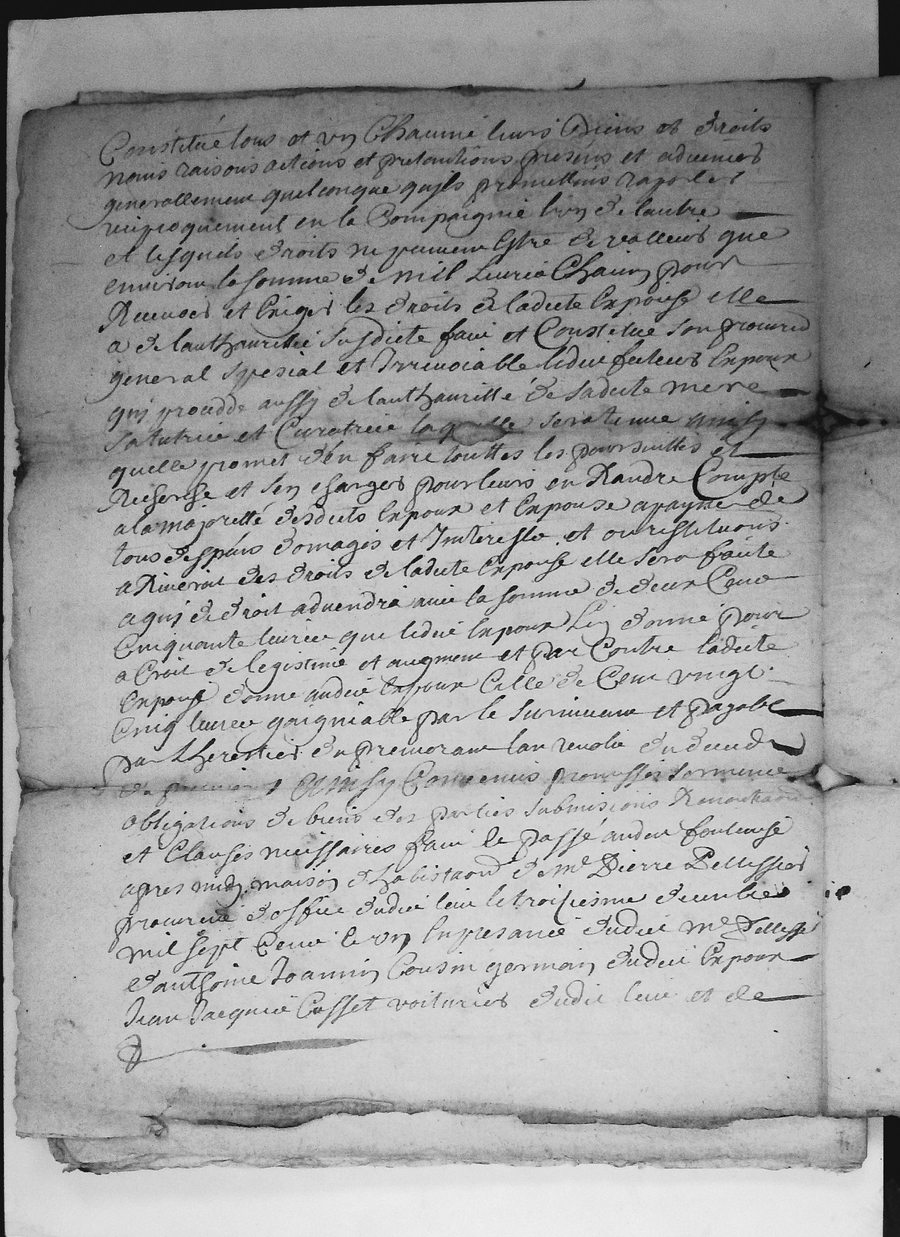 Constitué tous et un Chacuns leurs Biens et droits
noms raisons actions et pretantions presens et advenirs
generallement quelconque quils promettons raporter
reciproquement en la Compaignie lun de lautre
et lesquels droits ne peuvent Estre de valleur que
environ la somme de mil Livres Chacun pour
Recevoir et Exiger les droits de ladite Expouse elle
a de lauthaurité susdite fait et Constitue son procureur
general spesial et Irrevocable ledit futeur Expoux
quy procedde aussy de lauthauritté de sadite mere
sa tutrice et Curatrice laquelle sera tenue
quelle promet den faire touttes les poursuittes et
et sen charger pour leurs en Randre Compte
a la majoritté desdits Expoux et Expouse a payne de
tous despans domages et Interests et ou restitutions
a des droits de ladite Expouse elle sera faite
a qui de droit advendra avec la somme de deux Cens
Cinquante livres que ledit Expoux Luy donne pour
acroit de legistime et augment et par Contre ladite
Expouse donne audit Expoux Celle de Cent vingt
Cinq livres gaigniable par le survivant et payable
par lheretier du premourant lan revolu du deceds
de premier Ainsy Convenus promesses serments
obligations de biens des parties submissions Renontiaons
et Clauses necessaires fait et passé audit
apres midy maison dhabistaon de me Pierre Pellissier
procureur doffice dudit lieu le troisiesme decembre
mil sept Cent et un En presance dudit me Pellissier
danthoine Joannin Cousin germain dudit Expoux
Jean Jacques Cusset voiturier dudit lieu et de